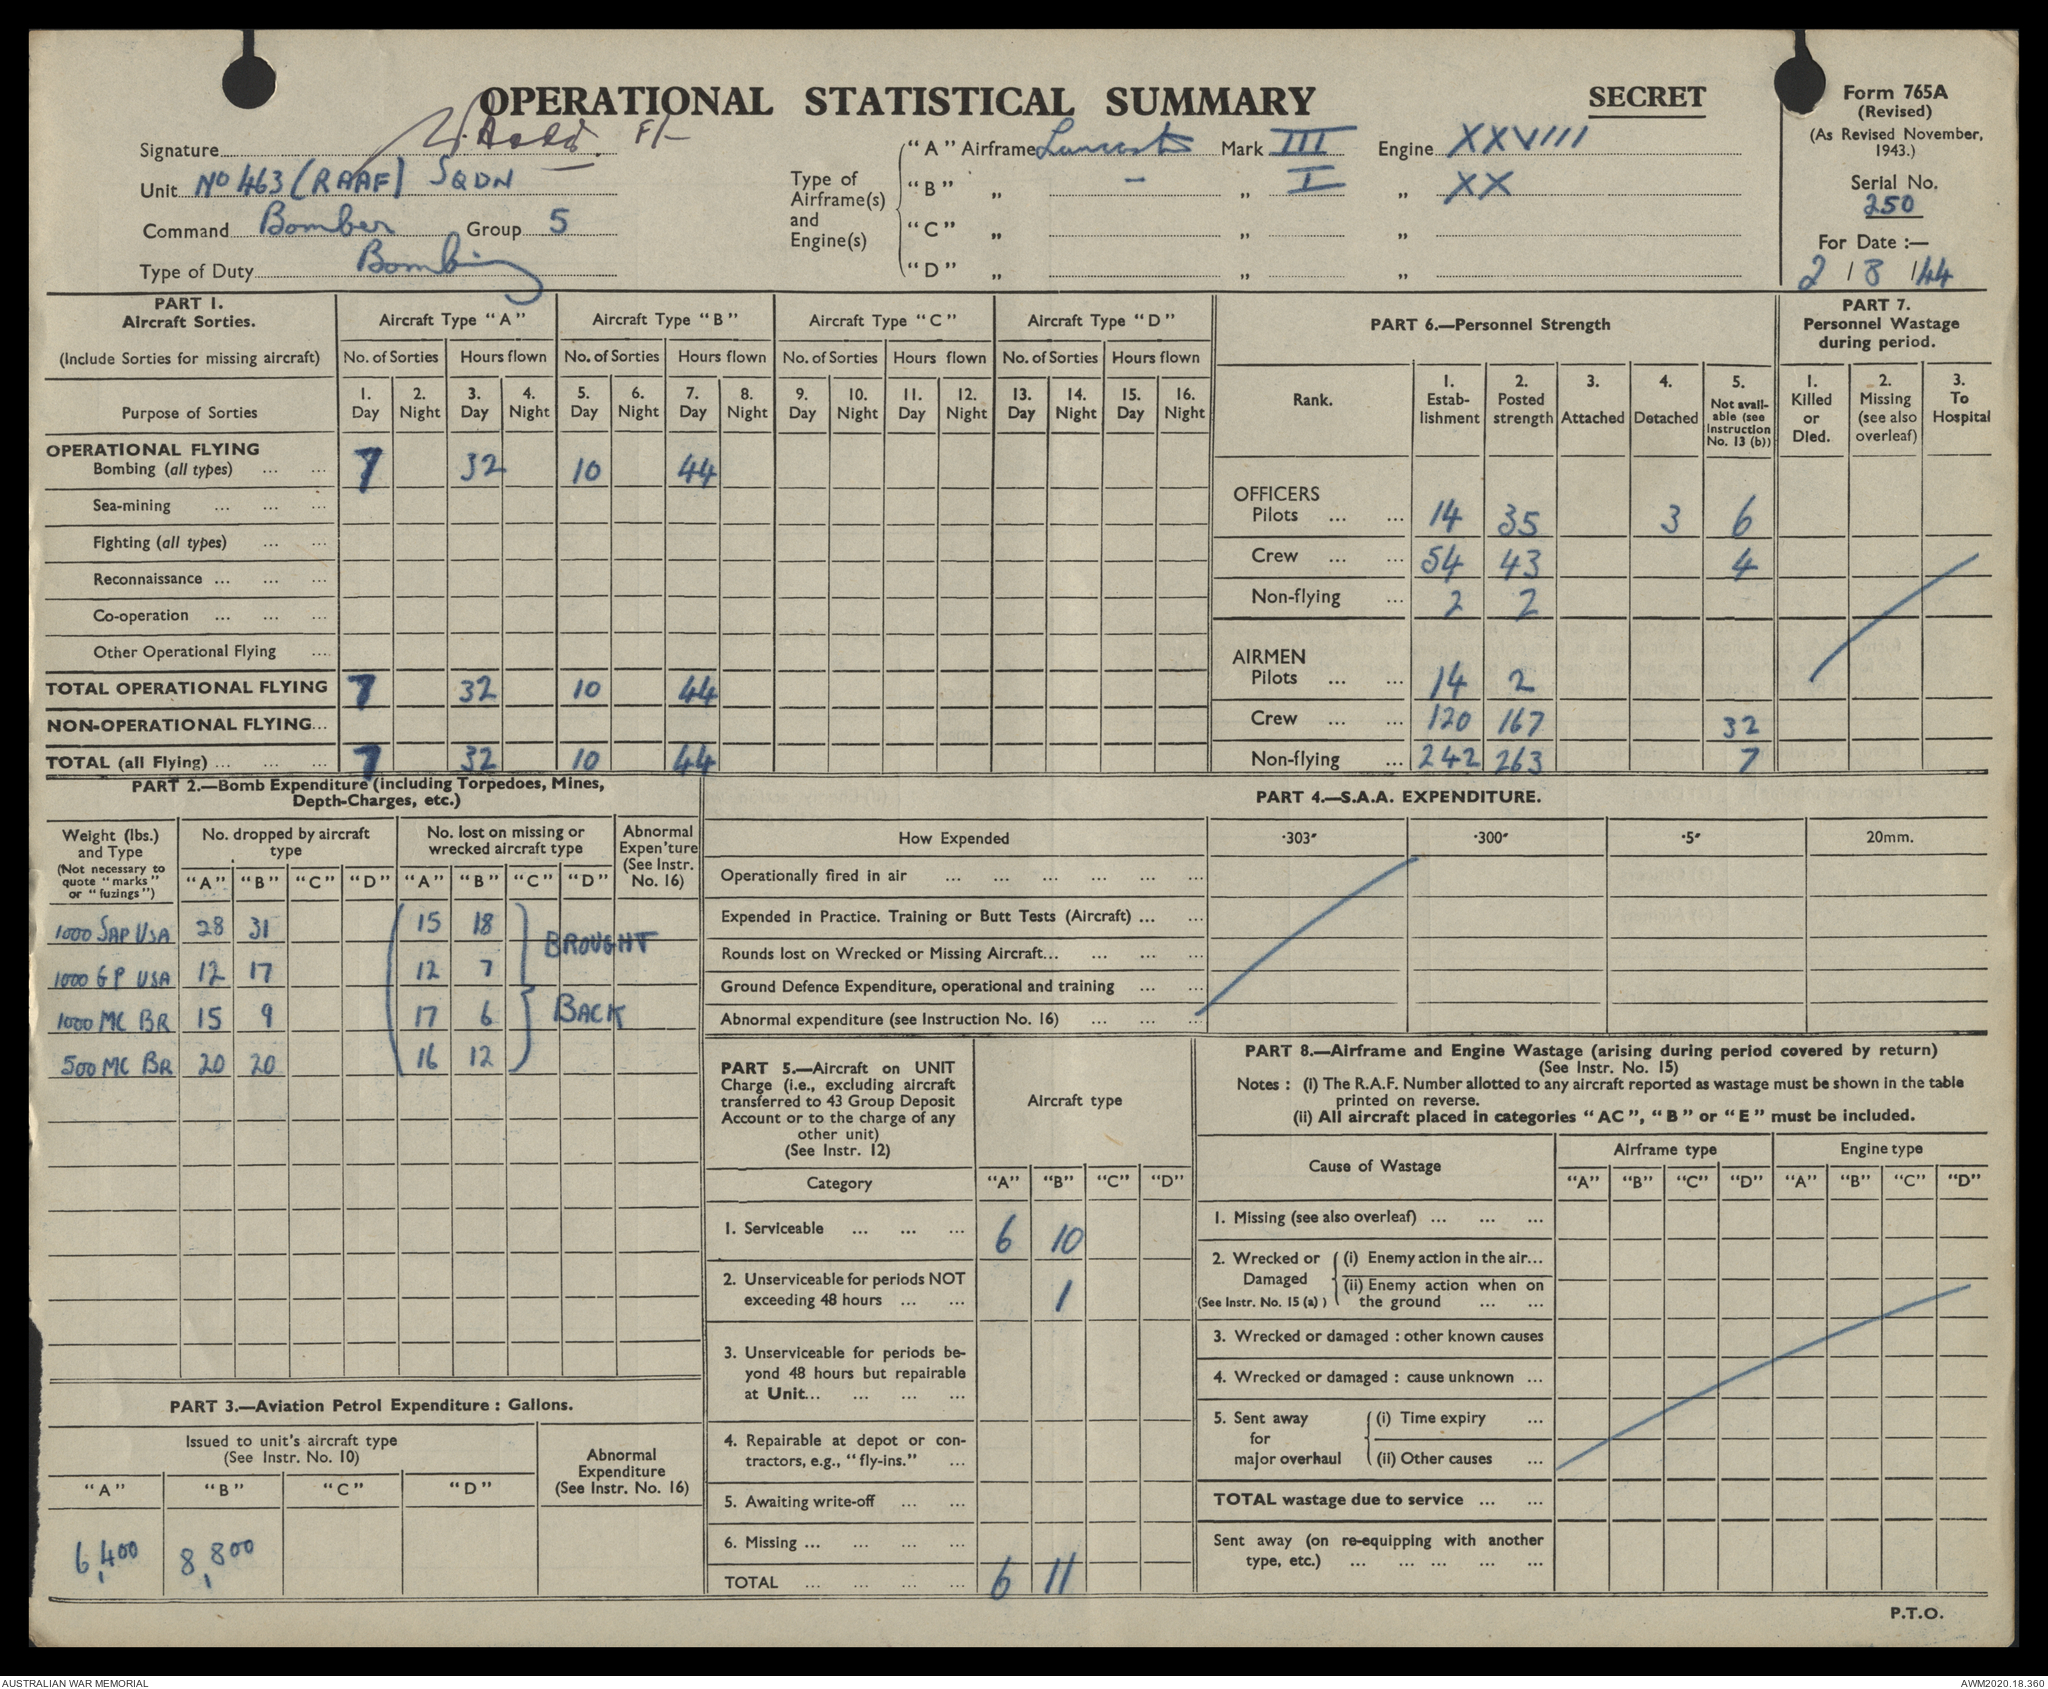 OPERATIONAL STATISTICAL SUMMARY
SECRET
Form 765A
(Revised)
(As Revised November, 1943.)
Serial No.
250
For Date :—
2 / 8 /44
Signature
Unit No 463 (RAAF) SQDN
Command Bomber Group 5
Type of Duty Bombing
Type of Airframe(s) and Engine(s)
"A" Airframe Lancaster Mark III Engine XXVIII
"B" „ - „ I „ XX
"C" „ „ „
"D" „ „ „
PART 1.
Aircraft Sorties.
(Include Sorties for missing aircraft)
Aircraft Type "A" Aircraft Type "B" Aircraft Type "C" Aircraft Type "D"
No. of Sorties Hours flown No. of Sorties Hours flown No. of Sorties Hours flown No. of Sorties Hours flown
Purpose of Sorties
1. Day 2. Night 3. Day 4. Night 5. Day 6. Night 7. Day 8. Night 9. Day 10. Night 11. Day 12. Night 13. Day 14. Night 15. Day 16. Night
OPERATIONAL FLYING
Bombing (all types) ... ... 7 32 10 44
Sea-mining ... ... ...
Fighting (all types) ... ...
Reconnaissance ... ... ...
Co-operation ... ... ...
Other Operational Flying ....
TOTAL OPERATIONAL FLYING 7 32 10 44
NON-OPERATIONAL FLYING...
TOTAL (all Flying) ... ... ... 7 32 10 44
PART 6.—Personnel Strength
Rank.
1. Estab-lishment
2. Posted strength
3. Attached
4. Detached
5. Not avail-able (see Instruction No. 13 (b))
OFFICERS
Pilots ... ... 14 35 3 6
Crew ... ... 54 43 4
Non-flying ... 2 2
AIRMEN
Pilots ... ... 14 2
Crew ... ... 120 167 32
Non-flying ... 242 263 7
PART 7.
Personnel Wastage during period.
1. Killed or Died.
2. Missing (see also overleaf)
3. To Hospital
PART 2.—Bomb Expenditure (including Torpedoes, Mines, Depth-Charges, etc.)
Weight (lbs.) and Type
(Not necessary to quote "marks" or "fuzings")
No. dropped by aircraft type
No. lost on missing or wrecked aircraft type
Abnormal Expen'ture (See Instr. No. 16)
"A" "B" "C" "D" "A" "B" "C" "D"
1000 SAP USA 28 31 15 18
1000 GP USA 12 17 12 7
1000 MC BR 15 9 17 6
500 MC BR 20 20 16 12
BROUGHT
BACK
PART 3.—Aviation Petrol Expenditure : Gallons.
Issued to unit's aircraft type
(See Instr. No. 10)
Abnormal Expenditure (See Instr. No. 16)
"A" "B" "C" "D"
6,400 8,800
PART 4.—S.A.A. EXPENDITURE.
How Expended ·303" ·300" ·5" 20mm.
Operationally fired in air ... ... ... ... ... ...
Expended in Practice. Training or Butt Tests (Aircraft) ... ...
Rounds lost on Wrecked or Missing Aircraft... ... ... ...
Ground Defence Expenditure, operational and training ... ...
Abnormal expenditure (see Instruction No. 16) ... ... ...
PART 5.—Aircraft on UNIT
Charge (i.e., excluding aircraft
transferred to 43 Group Deposit
Account or to the charge of any
other unit)
(See Instr. 12)
Aircraft type
Category "A" "B" "C" "D"
1. Serviceable ... ... ... 6 10
2. Unserviceable for periods NOT
exceeding 48 hours ... ... 1
3. Unserviceable for periods be-
yond 48 hours but repairable
at Unit... ... ... ...
4. Repairable at depot or con-
tractors, e.g., "fly-ins." ...
5. Awaiting write-off ... ...
6. Missing ... ... ... ...
TOTAL ... ... ... ... 6 11
PART 8.—Airframe and Engine Wastage (arising during period covered by return)
(See Instr. No. 15)
Notes : (i) The R.A.F. Number allotted to any aircraft reported as wastage must be shown in the table
printed on reverse.
(ii) All aircraft placed in categories "AC", "B" or "E" must be included.
Cause of Wastage
Airframe type Engine type
"A" "B" "C" "D" "A" "B" "C" "D"
1. Missing (see also overleaf) ... ... ...
2. Wrecked or Damaged
(See Instr. No. 15 (a) )
(i) Enemy action in the air...
(ii) Enemy action when on
the ground ... ...
3. Wrecked or damaged : other known causes
4. Wrecked or damaged : cause unknown ...
5. Sent away for major overhaul
(i) Time expiry ...
(ii) Other causes ...
TOTAL wastage due to service ... ...
Sent away (on re-equipping with another
type, etc.) ... ... ... ... ...
P.T.O.
AUSTRALIAN WAR MEMORIAL
AWM2020.18.360